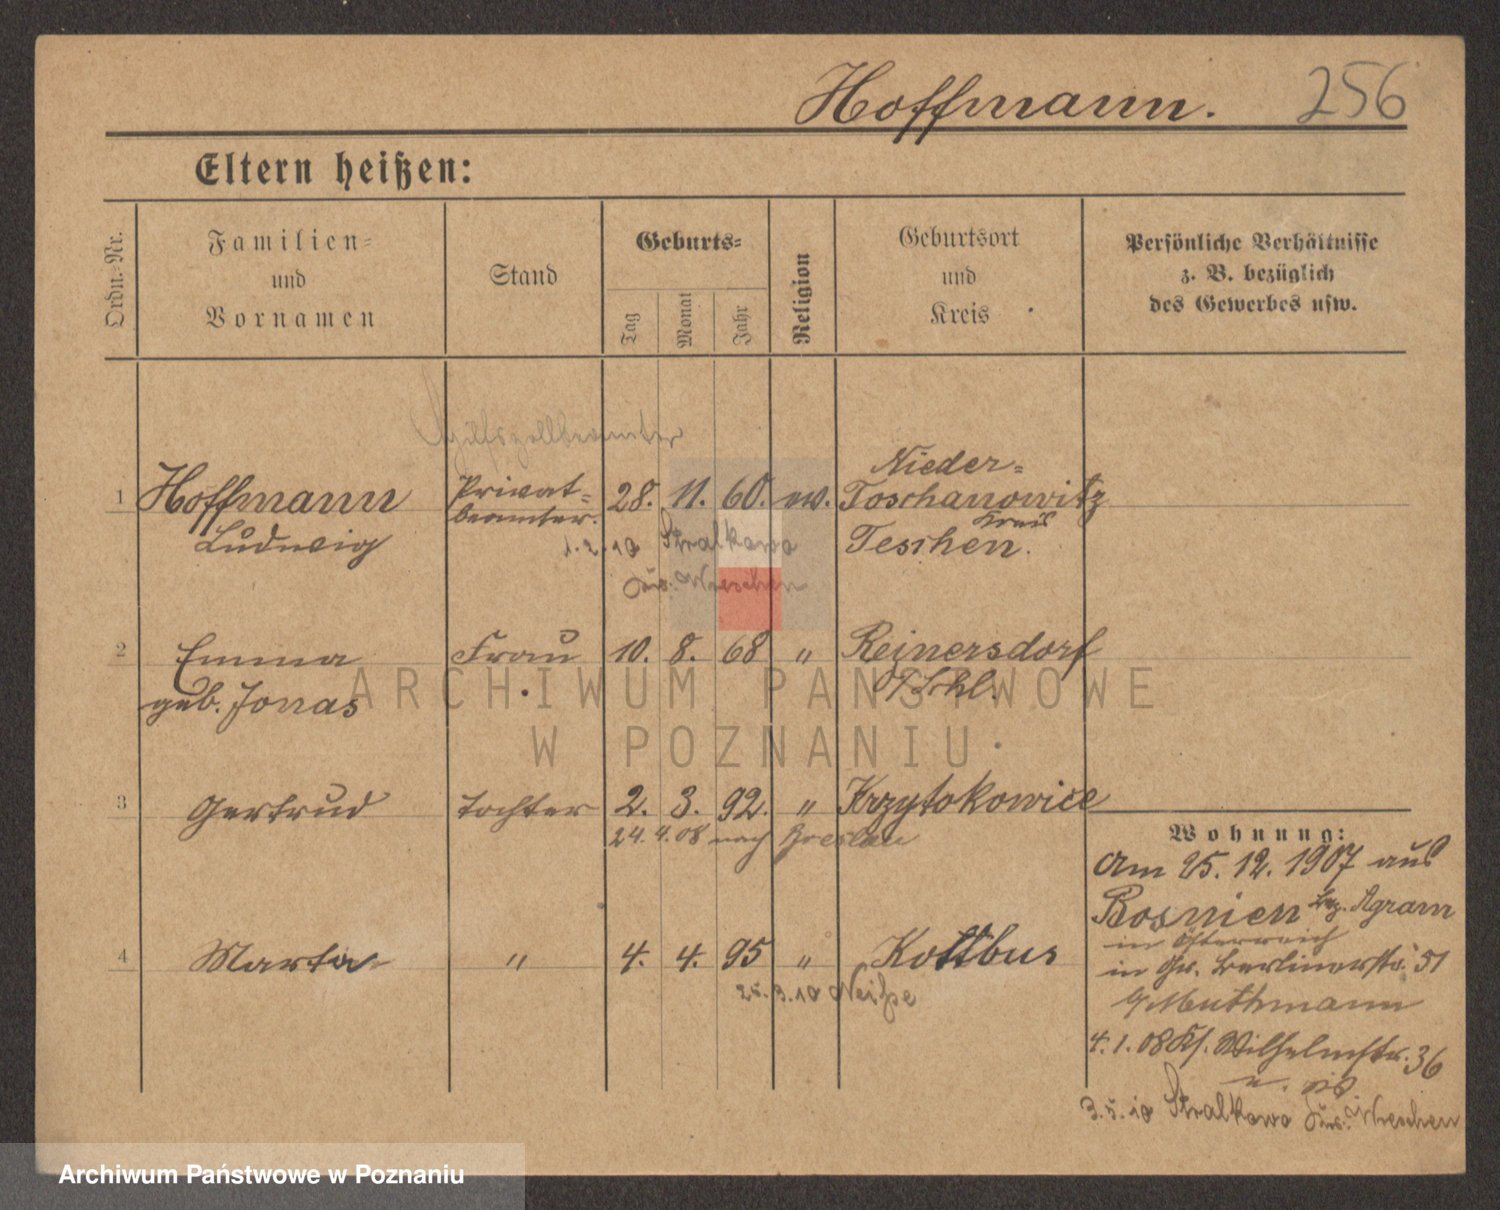 Hoffmann. 256
Eltern heißen:
Ordn.-Nr.
Familien-
und
Vornamen
Stand
Geburts-
Tag
Monat
Jahr
Religion
Geburtsort
und
Kreis
Persönliche Verhältnisse
z. B. bezüglich
des Gewerbes usw.
Hilfszollbeamter
1 Hoffmann Privat- 28. 11. 60. ev. Nieder-
Toschanowitz
Ludwig beamter. Kreis
Teschen.
1.2.10 Stralkowo
Krs. Wreschen
2 Emma Frau 10. 8. 68 " Reinersdorf
geb. Jonas
ARCHIWUM PAŃSTWOWE
W POZNANIU
3 Gertrud Tochter 2. 3. 92. " Krzytokowice
24.4.08 nach Breslau
4 Marta " 4. 4. 95 " Kottbus
25.3.10 Neiße
Wohnung:
Am 25.12.1907 aus
Bosnien Bez. Agram
in Österreich
in Gr. Berlinerstr. 51
Muthmann
4.1.08 Kl. Wilhelmstr. 36
3.5.10 Stralkowo Krs. Wreschen
Archiwum Państwowe w Poznaniu